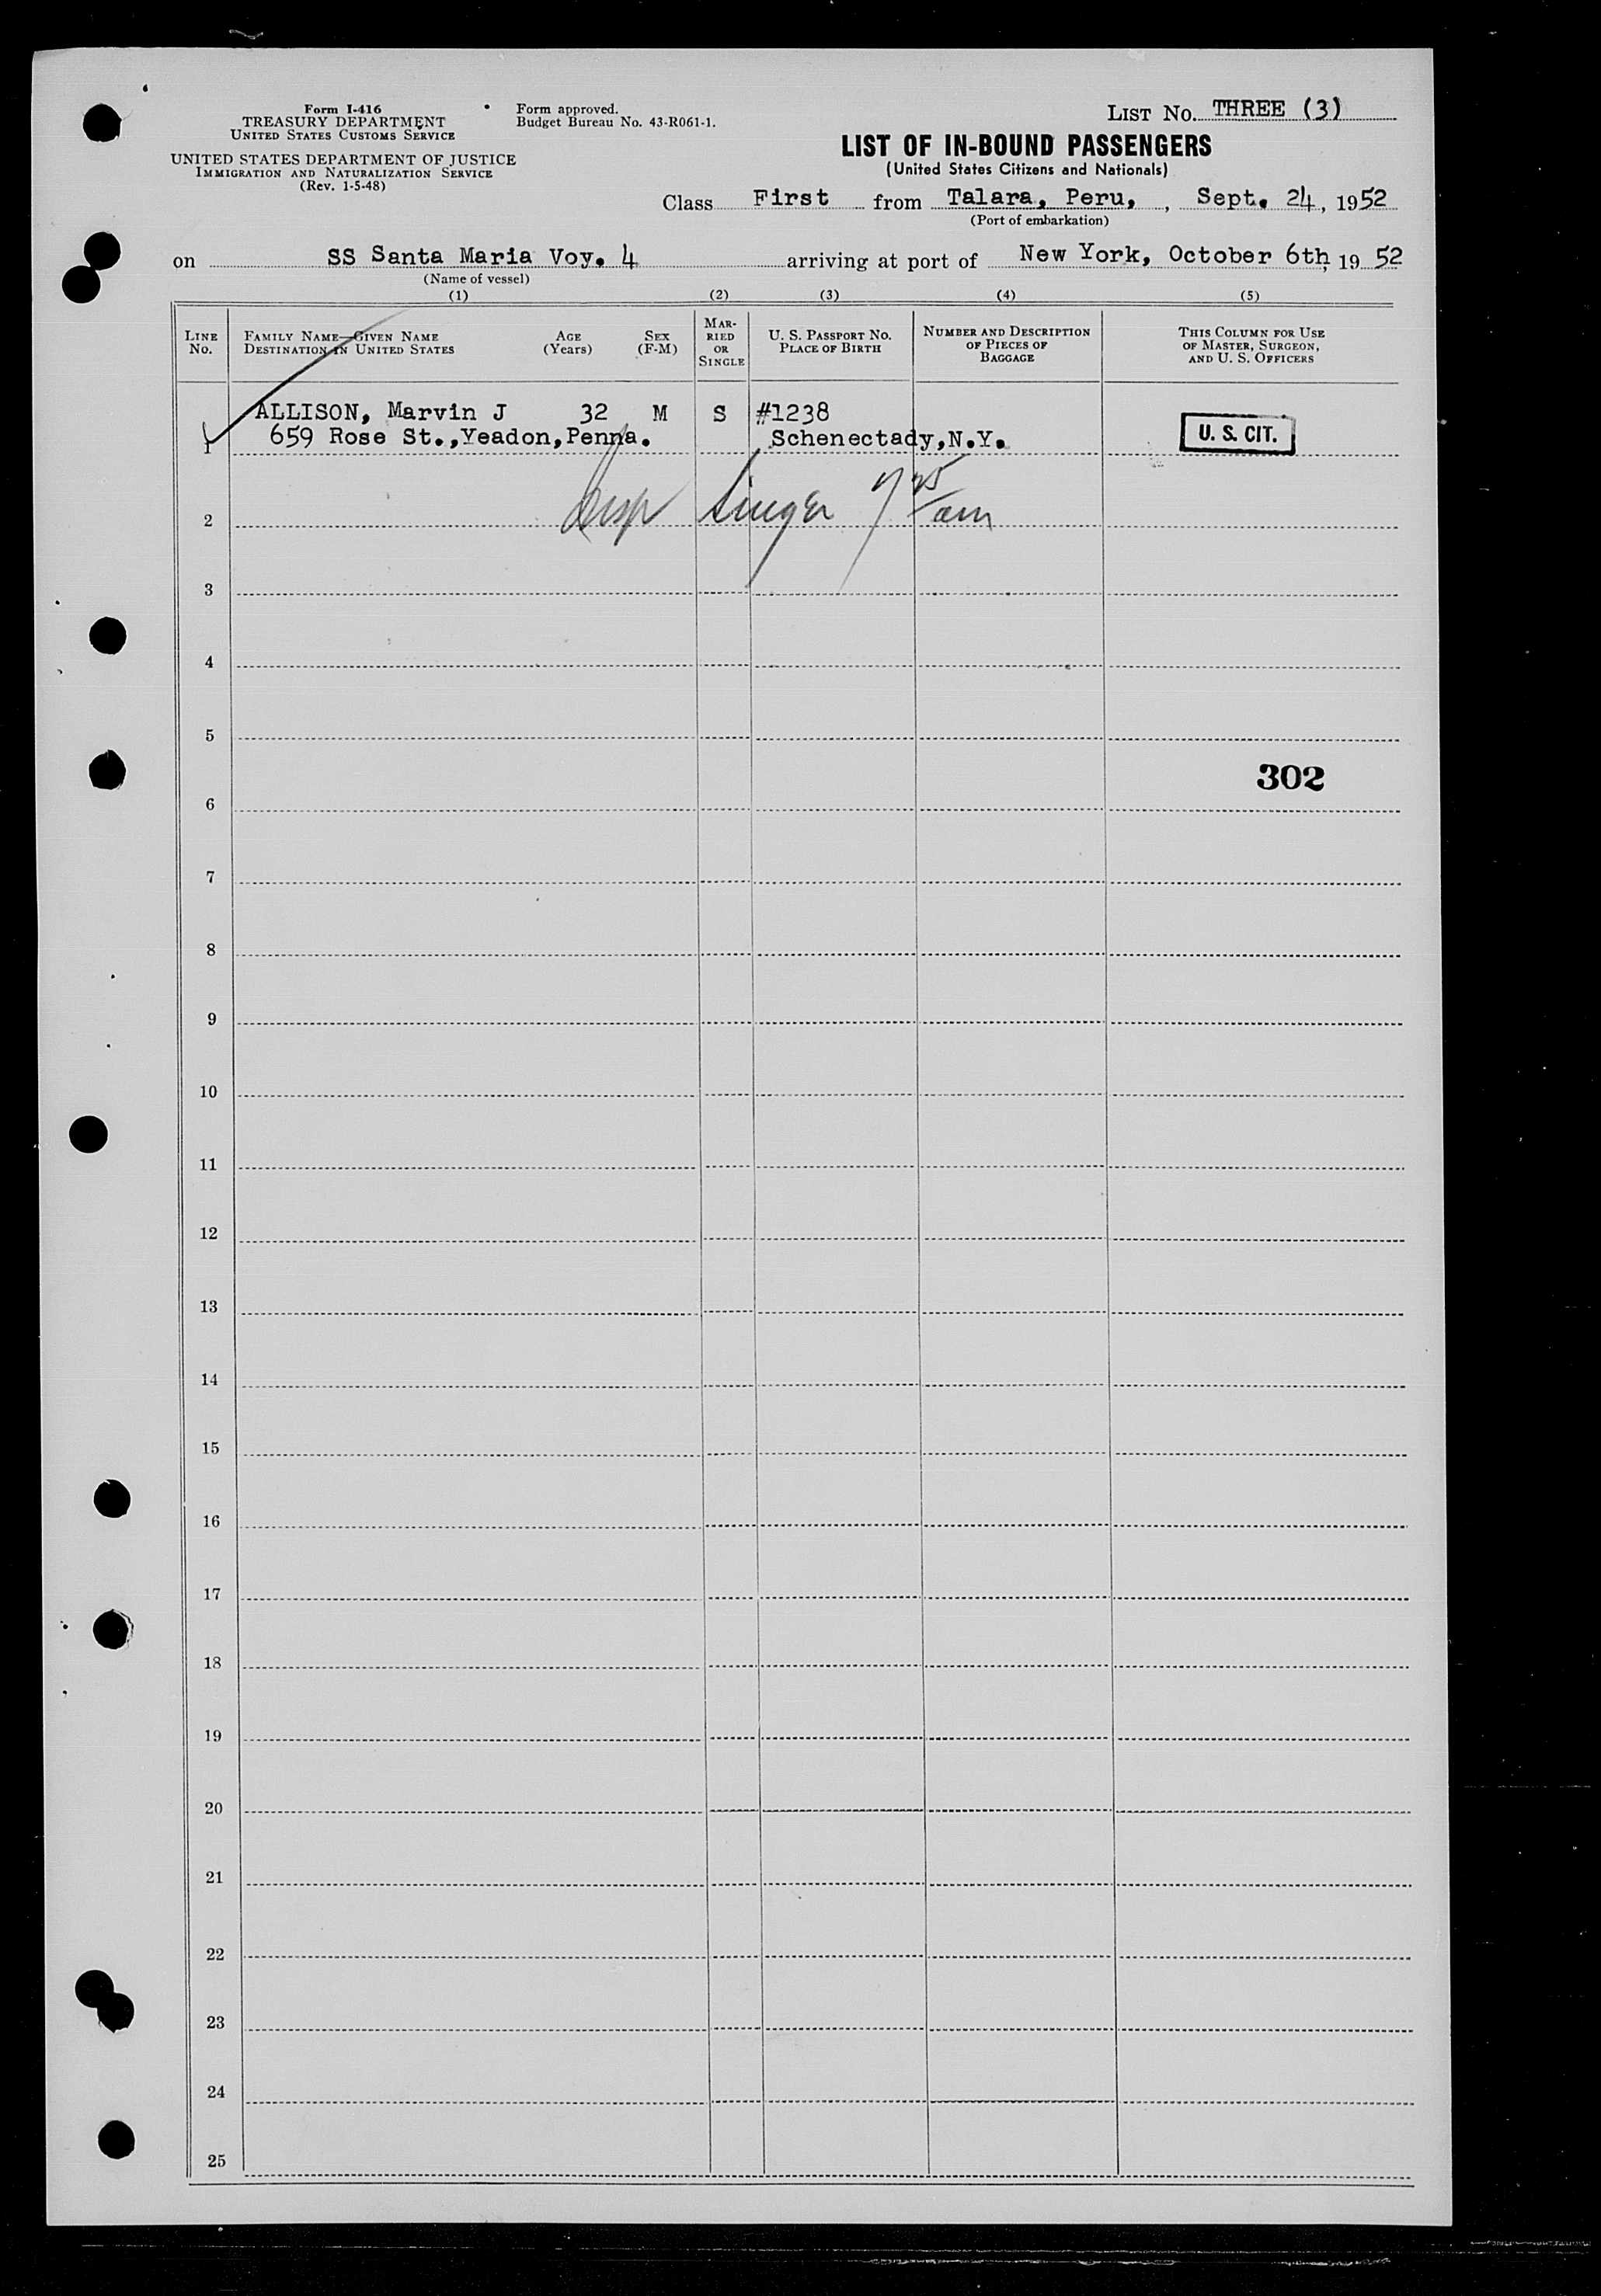 Form I-416
TREASURY DEPARTMENT
UNITED STATES CUSTOMS SERVICE
UNITED STATES DEPARTMENT OF JUSTICE
IMMIGRATION AND NATURALIZATION SERVICE
(Rev. 1-5-48)
Form approved.
Budget Bureau No. 43-R061-1.
LIST NO. THREE (3)
LIST OF IN-BOUND PASSENGERS
(United States Citizens and Nationals)
Class First from Talara, Peru, , Sept. 24, 1952
(Port of embarkation)
on SS Santa Maria Voy. 4 arriving at port of New York, October 6th, 19 52
(Name of vessel)
(1) (2) (3) (4) (5)
LINE NO.
FAMILY NAME—GIVEN NAME
DESTINATION IN UNITED STATES
AGE (Years)
SEX (F-M)
MARRIED OR SINGLE
U. S. PASSPORT NO.
PLACE OF BIRTH
NUMBER AND DESCRIPTION
OF PIECES OF
BAGGAGE
THIS COLUMN FOR USE
OF MASTER, SURGEON,
AND U. S. OFFICERS
ALLISON, Marvin J 32 M S #1238
1 659 Rose St.,Yeadon,Penna. Schenectady,N.Y. U. S. CIT.
2 Insp Singer 7 25/am
3
4
5
302
6
7
8
9
10
11
12
13
14
15
16
17
18
19
20
21
22
23
24
25